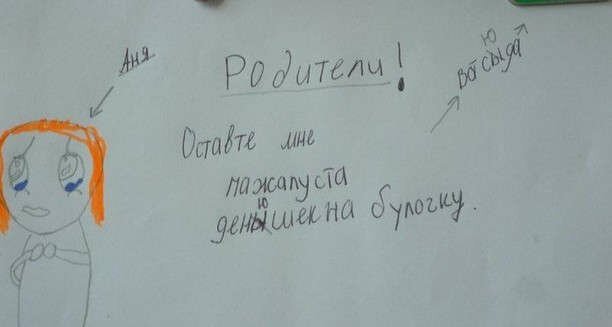 Аня
Родители!
сюда
Оставте мне
пажалуста
денюшек на булочку.